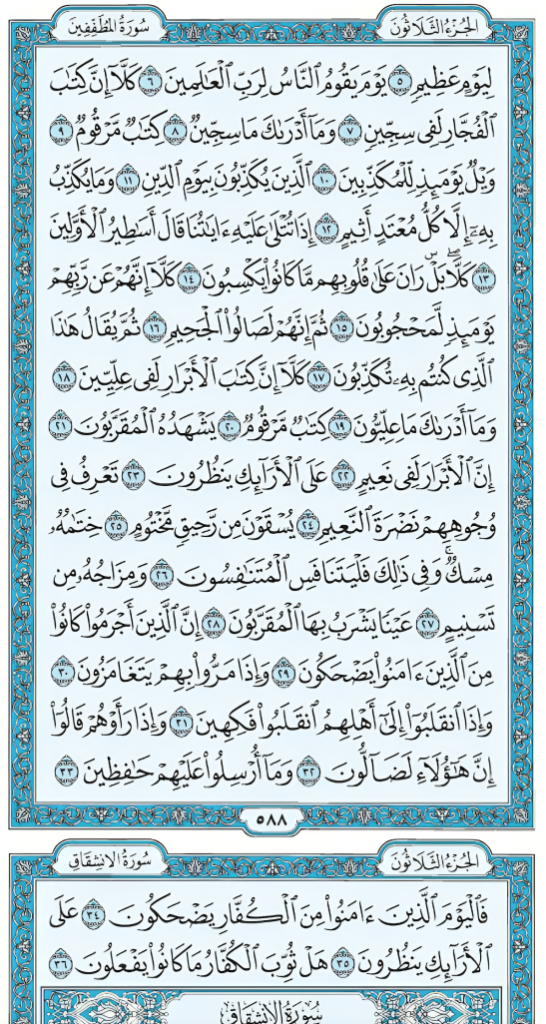 الجزء الثلاثون
سورة المطففين
لِيَوْمٍ عَظِيمٍ ٥ يَوْمَ يَقُومُ ٱلنَّاسُ لِرَبِّ ٱلْعَٰلَمِينَ ٦ كَلَّآ إِنَّ كِتَٰبَ
ٱلْفُجَّارِ لَفِى سِجِّينٍ ٧ وَمَآ أَدْرَىٰكَ مَا سِجِّينٌ ٨ كِتَٰبٌ مَّرْقُومٌ ٩
وَيْلٌ يَوْمَئِذٍ لِّلْمُكَذِّبِينَ ١٠ ٱلَّذِينَ يُكَذِّبُونَ بِيَوْمِ ٱلدِّينِ ١١ وَمَا يُكَذِّبُ
بِهِۦٓ إِلَّا كُلُّ مُعْتَدٍ أَثِيمٍ ١٢ إِذَا تُتْلَىٰ عَلَيْهِ ءَايَٰتُنَا قَالَ أَسَٰطِيرُ ٱلْأَوَّلِينَ
١٣ كَلَّا ۖ بَلْ ۜ رَانَ عَلَىٰ قُلُوبِهِم مَّا كَانُوا۟ يَكْسِبُونَ ١٤ كَلَّآ إِنَّهُمْ عَن رَّبِّهِمْ
يَوْمَئِذٍ لَّمَحْجُوبُونَ ١٥ ثُمَّ إِنَّهُمْ لَصَالُوا۟ ٱلْجَحِيمِ ١٦ ثُمَّ يُقَالُ هَٰذَا
ٱلَّذِى كُنتُم بِهِۦ تُكَذِّبُونَ ١٧ كَلَّآ إِنَّ كِتَٰبَ ٱلْأَبْرَارِ لَفِى عِلِّيِّينَ ١٨
وَمَآ أَدْرَىٰكَ مَا عِلِّيُّونَ ١٩ كِتَٰبٌ مَّرْقُومٌ ٢٠ يَشْهَدُهُ ٱلْمُقَرَّبُونَ ٢١
إِنَّ ٱلْأَبْرَارَ لَفِى نَعِيمٍ ٢٢ عَلَى ٱلْأَرَآئِكِ يَنظُرُونَ ٢٣ تَعْرِفُ فِى
وُجُوهِهِمْ نَضْرَةَ ٱلنَّعِيمِ ٢٤ يُسْقَوْنَ مِن رَّحِيقٍ مَّخْتُومٍ ٢٥ خِتَٰمُهُۥ
مِسْكٌ ۚ وَفِى ذَٰلِكَ فَلْيَتَنَافَسِ ٱلْمُتَنَٰفِسُونَ ٢٦ وَمِزَاجُهُۥ مِن
تَسْنِيمٍ ٢٧ عَيْنًا يَشْرَبُ بِهَا ٱلْمُقَرَّبُونَ ٢٨ إِنَّ ٱلَّذِينَ أَجْرَمُوا۟ كَانُوا۟
مِنَ ٱلَّذِينَ ءَامَنُوا۟ يَضْحَكُونَ ٢٩ وَإِذَا مَرُّوا۟ بِهِمْ يَتَغَامَزُونَ ٣٠
وَإِذَا ٱنقَلَبُوٓا۟ إِلَىٰٓ أَهْلِهِمُ ٱنقَلَبُوا۟ فَكِهِينَ ٣١ وَإِذَا رَأَوْهُمْ قَالُوٓا۟
إِنَّ هَٰٓؤُلَآءِ لَضَآلُّونَ ٣٢ وَمَآ أُرْسِلُوا۟ عَلَيْهِمْ حَٰفِظِينَ ٣٣
٥٨٨
الجزء الثلاثون
سورة الانشقاق
فَٱلْيَوْمَ ٱلَّذِينَ ءَامَنُوا۟ مِنَ ٱلْكُفَّارِ يَضْحَكُونَ ٣٤ عَلَى
ٱلْأَرَآئِكِ يَنظُرُونَ ٣٥ هَلْ ثُوِّبَ ٱلْكُفَّارُ مَا كَانُوا۟ يَفْعَلُونَ ٣٦
سورة الانشقاق